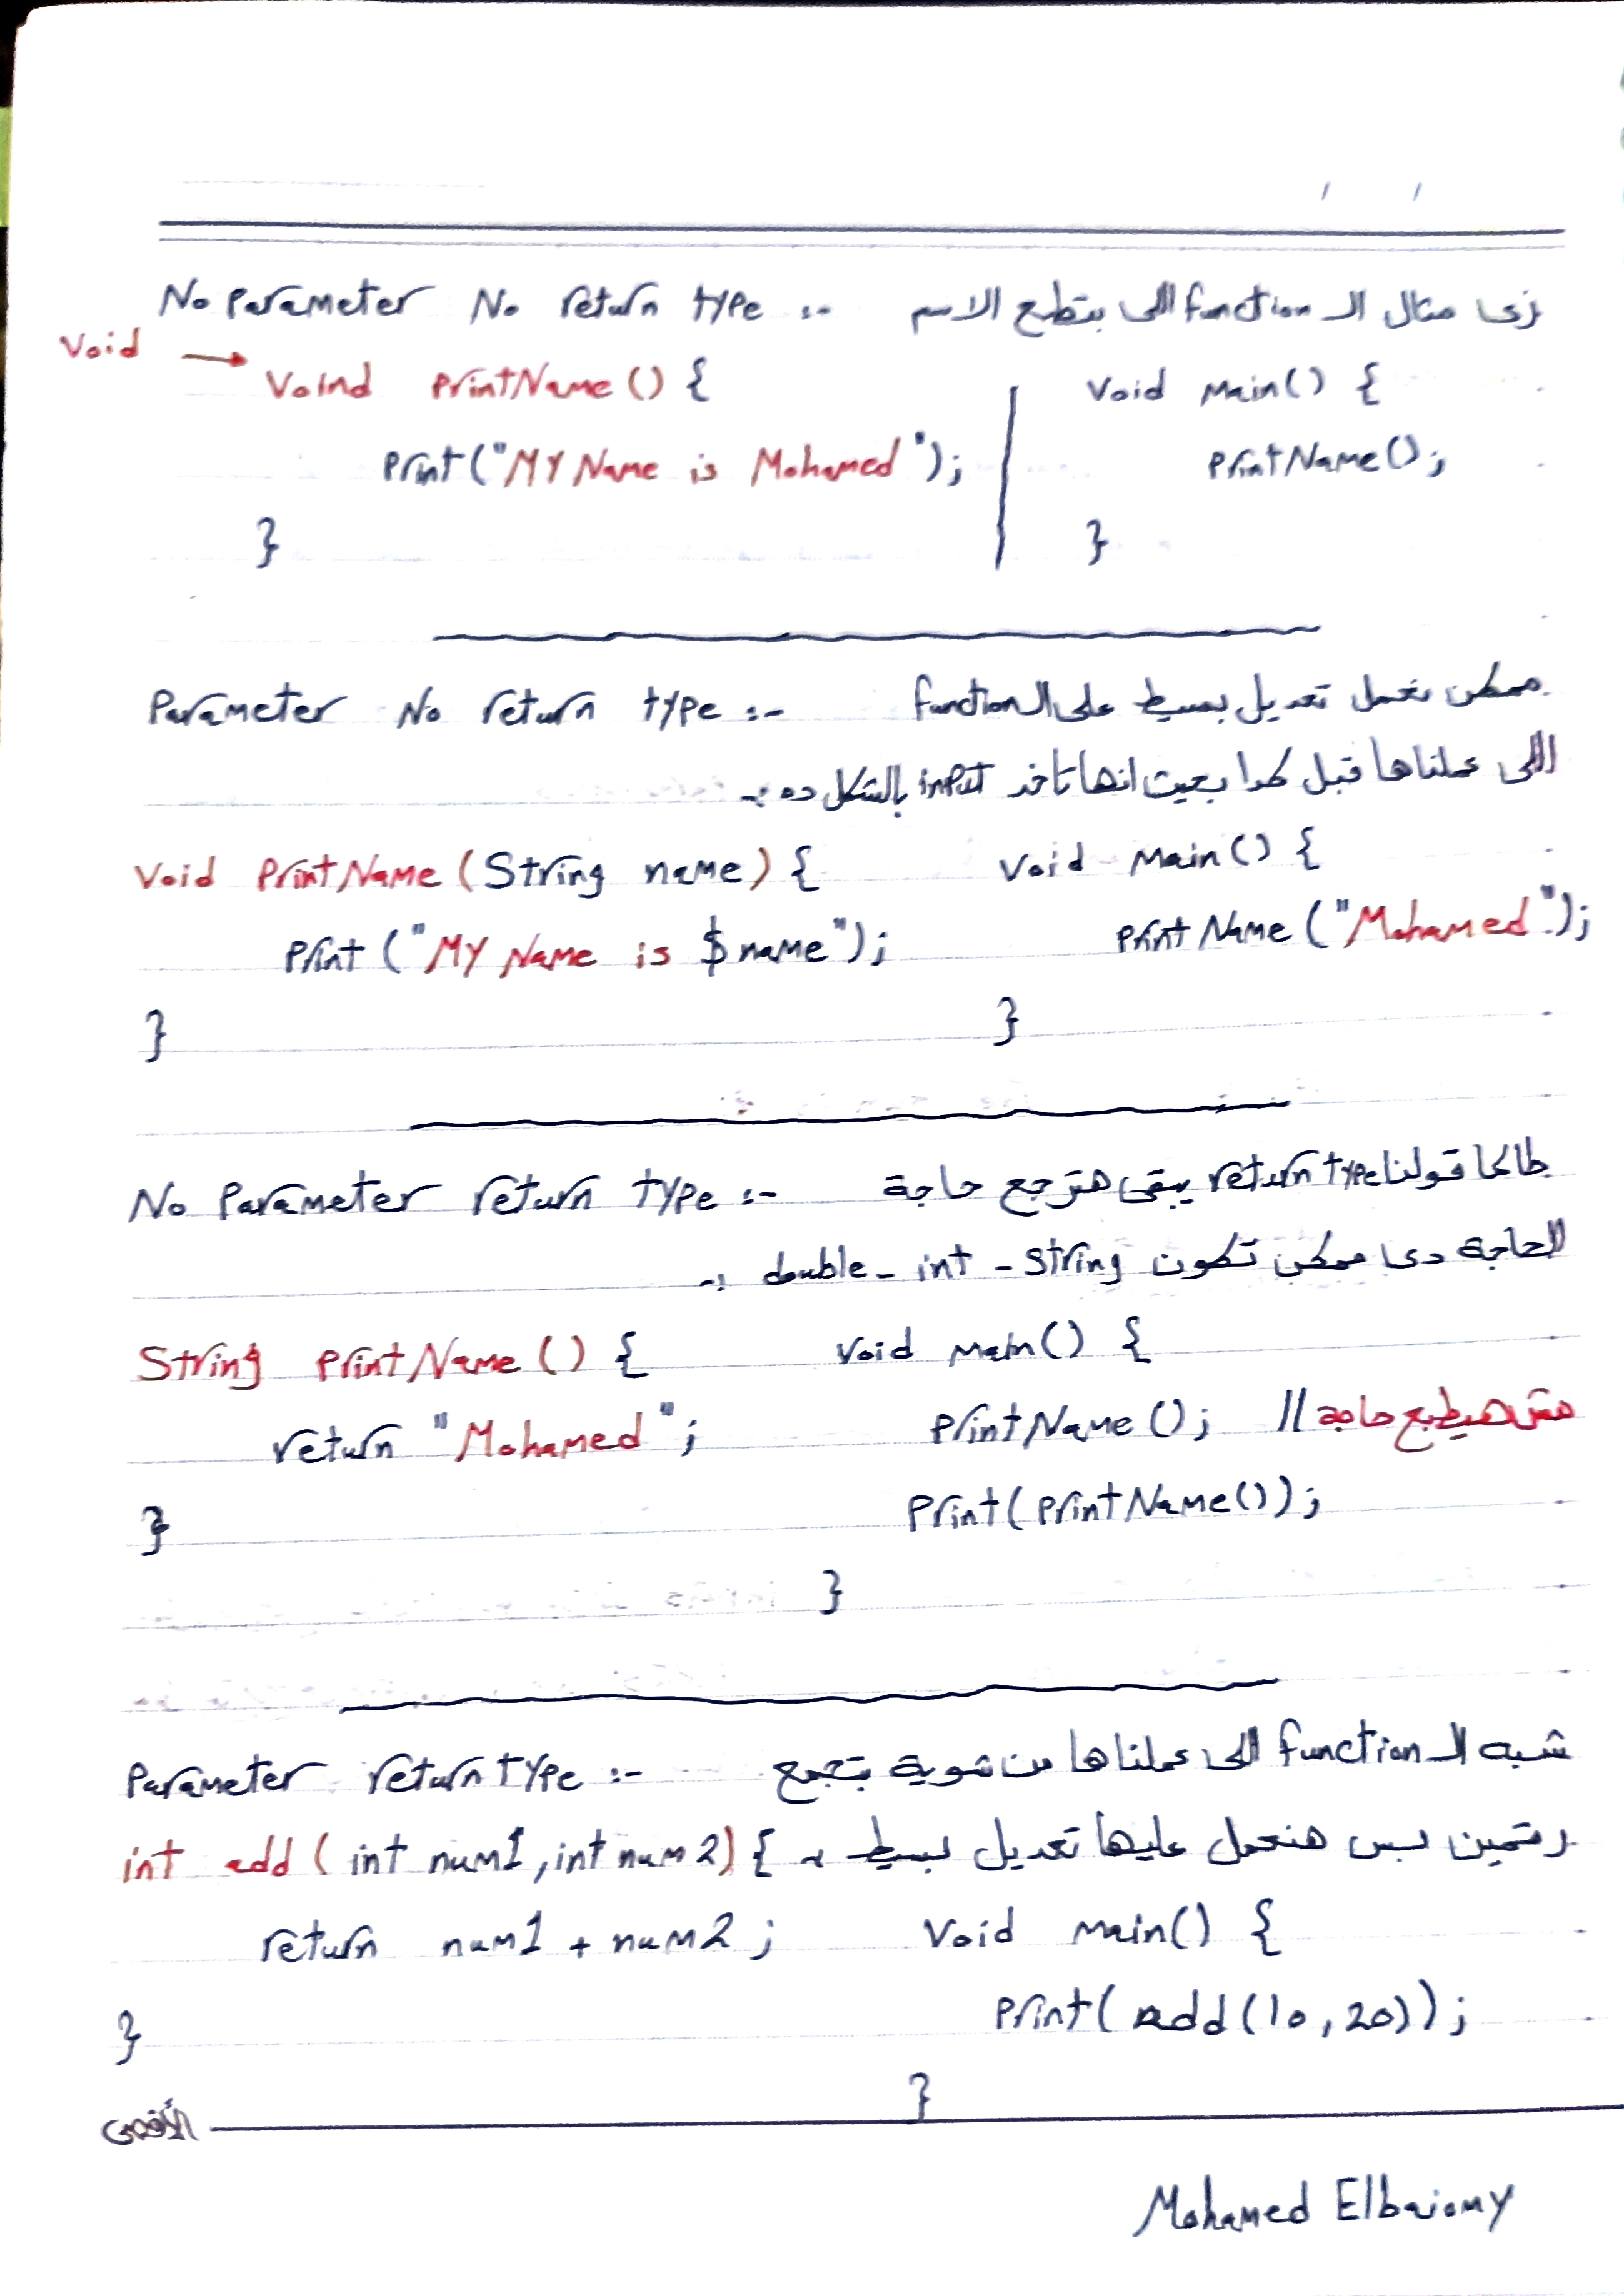 No Parameter No return type :- زى مثال الـ function اللى بتطبع الاسم
Void →
Voind PrintName () { Void main() {
Print ("MY Name is Mohamed"); PrintName();
} }
Parameter No return type :- ممكن نعمل تعديل بسيط على الـ function
اللى عملناها قبل كدا بحيث انها تاخد input بالشكل ده :-
Void PrintName (String name) { Void main() {
Print ("MY Name is $name"); PrintName ("Mohamed");
} }
No Parameter return type :- طالما قولنا return type يبقى هترجع حاجة
الحاجة دى ممكن تكون double - int - String :-
String PrintName () { Void main() {
return "Mohamed"; PrintName (); // مش هيطبع حاجة
} Print( PrintName());
}
Parameter return type :- شبه الـ function اللى عملناها من شوية بتجمع
int add ( int num1, int num2) { رقمين بس هنعمل عليها تعديل بسيط
return num1 + num2 ; Void main() {
} Print( add (10, 20));
}
الأقصى
Mohamed Elbaiomy